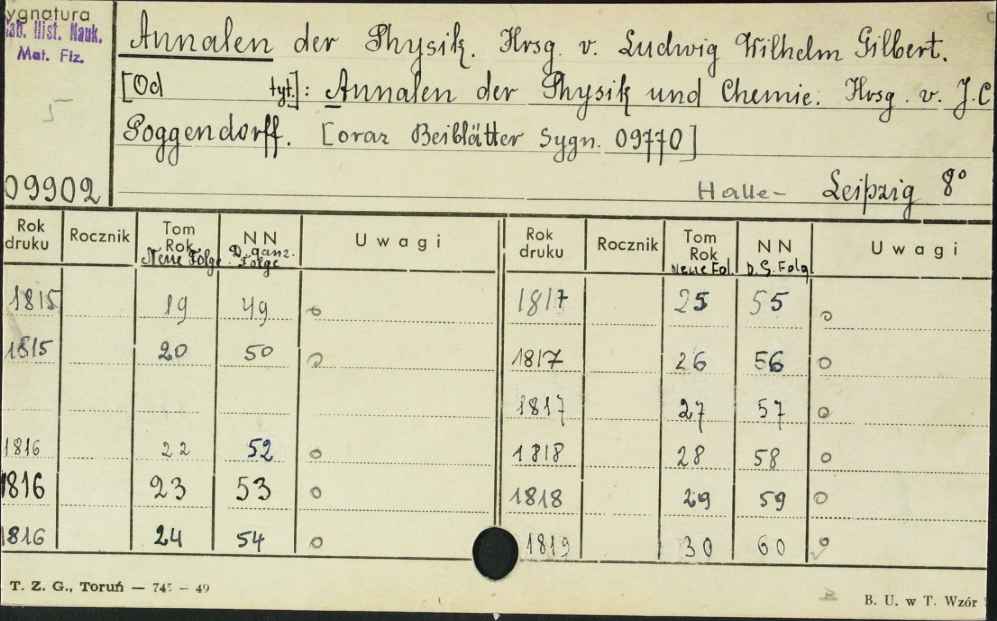 ygnatura
Gab. Hist. Nauk.
Mat. Fiz.
5
09902
Annalen der Physik. Hrsg. v. Ludwig Wilhelm Gilbert.
[Od tyt.]: Annalen der Physik und Chemie. Hrsg. v. J.C
Poggendorff. [oraz Beiblätter Sygn. 09770]
Halle- Leipzig 8°
Rok druku Rocznik Tom Rok Neue Folge NN D. ganz. Folge Uwagi Rok druku Rocznik Tom Rok Neue Fol. NN D. G. Folg Uwagi
1815 19 49 o 1817 25 55 o
1815 20 50 o 1817 26 56 o
1817 27 57 o
1816 22 52 o 1818 28 58 o
1816 23 53 o 1818 29 59 o
1816 24 54 o 1819 30 60 o
T. Z. G., Toruń — 745 — 49
B. U. w T. Wzór